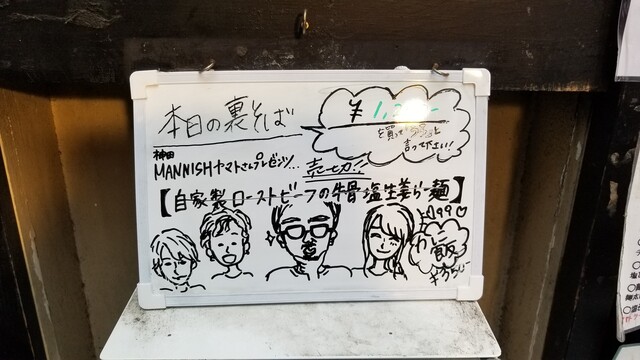 本日の裏そば
¥1,
を買って
言って下さい!
神田
MANNISHヤマトさんプレゼンツ...
売切!!
【自家製ローストビーフの牛骨塩生姜らー麺】
飯